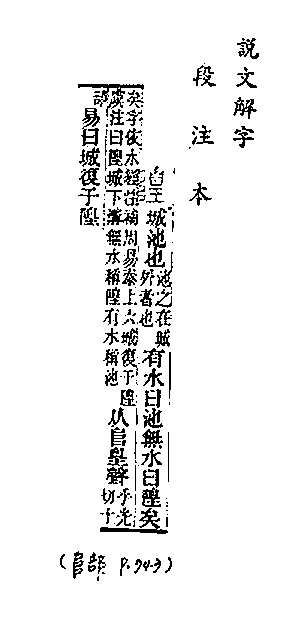 說文解字
段注本
隍
城池也
池之在城
外者也
有水曰池無水曰隍矣
矣字依水經注補周易泰上六城復于隍
虞注曰隍城下溝無水稱隍有水稱池
从𨸏皇聲
乎光
切十
部
易曰城復于隍
(𨸏部 P.943)